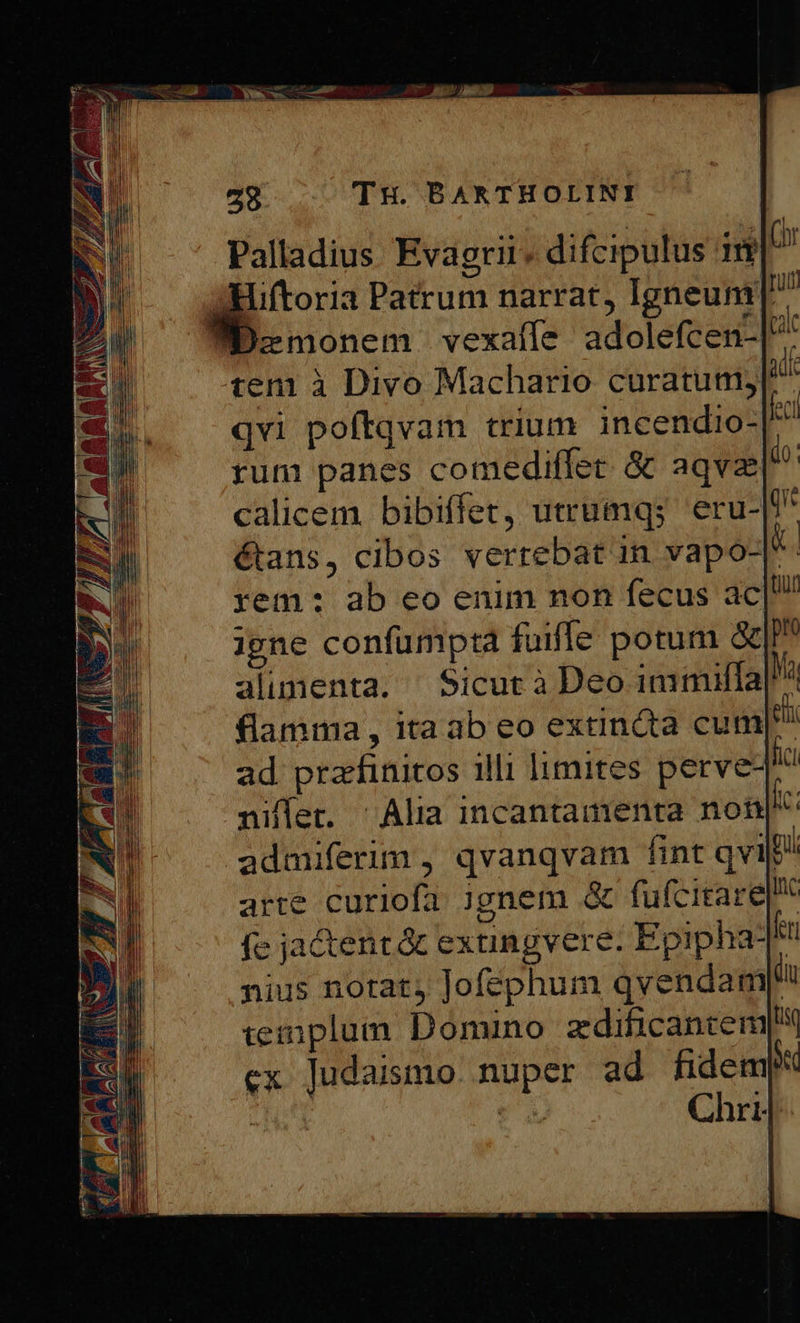 38 TH. BARTHOLINI
Palladius Evagrii. difcipulus in
Hiftoria Patrum narrat, Igneum
Dæmonem vexaffe adolefcen-
tem à Divo Machario curatum,
qvi poftqvam trium incendio-
rum panes comediffet & aqvæ
calicem bibiffet, utrumq; eru-
ctans, cibos vertebat in vapo-
rem: ab eo enim non fecus ac
igne confumpta fuiffe potum &
alimenta. Sicut à Deo immiffa
flamma, ita ab eo extincta cum
ad præfinitos illi limites perve-
niffet. Alia incantamenta non
admiferim, qvanqvam fint qvi
arte curiofa ignem & fufcitare
fe jactent & extingvere. Epipha-
nius notat, Jofephum qvendam
templum Domino ædificantem
ex Judaismo nuper ad fidem
Chri-